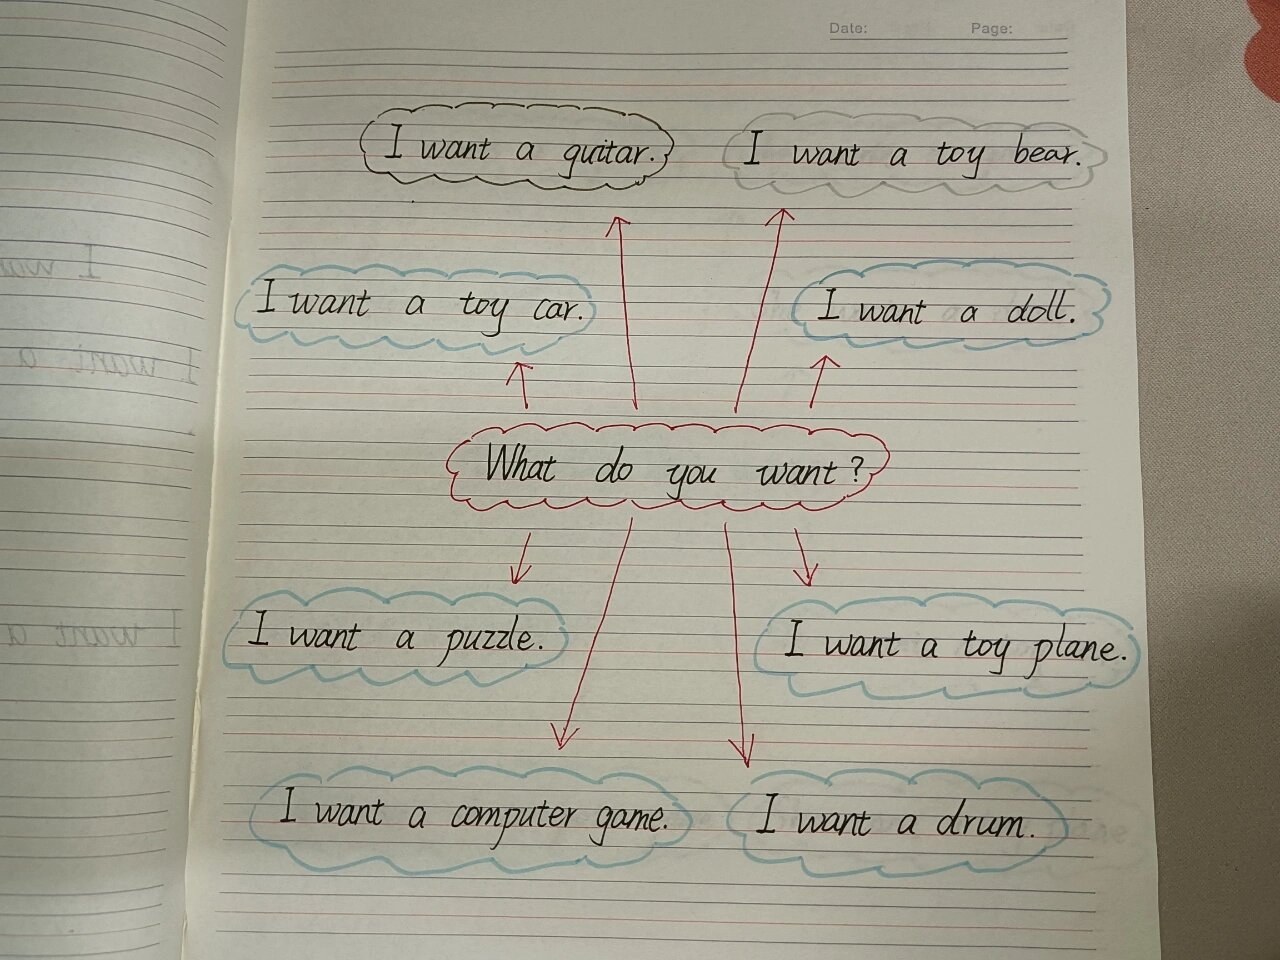 Date: Page:
I want a guitar.
I want a toy bear.
I want a toy car.
I want a doll.
What do you want?
I want a puzzle.
I want a toy plane.
I want a computer game.
I want a drum.